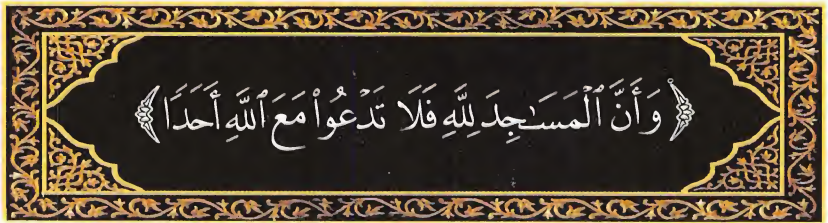 ﴿وَأَنَّ ٱلْمَسَـٰجِدَ لِلَّهِ فَلَا تَدْعُوا۟ مَعَ ٱللَّهِ أَحَدًا﴾